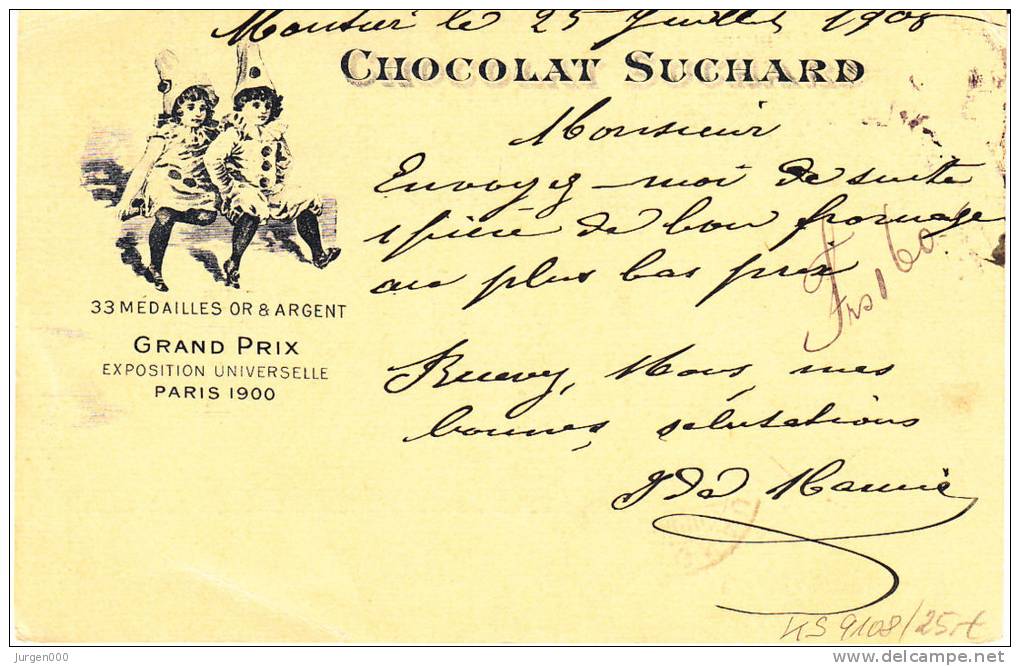 le 25 Juillet 1908
CHOCOLAT SUCHARD
Monsieur
Envoyez-moi de suite
1 pièce de bon fromage
au plus bas prix
Frs 160
33 MÉDAILLES OR & ARGENT
GRAND PRIX
EXPOSITION UNIVERSELLE
PARIS 1900
mes
bonnes salutations
Ida
KS 9108/25.-€
jurgen000
www.delcampe.net